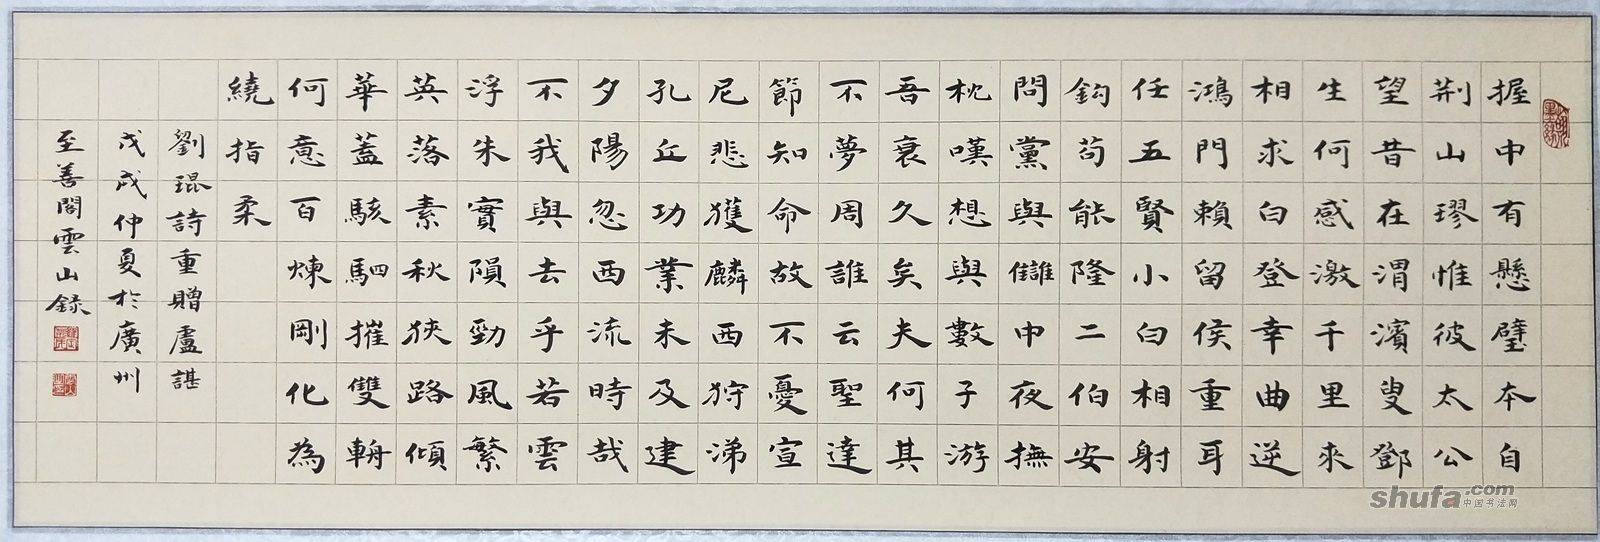 握中有懸璧本自
荆山璆惟彼太公
望昔在渭濱叟鄧
生何感激千里來
相求白登幸曲逆
鴻門賴留侯重耳
任五賢小白相射
鈎苟能隆二伯安
問黨與讎中夜撫
枕嘆想與數子游
吾衰久矣夫何其
不夢周誰云聖達
節知命故不憂宣
尼悲獲麟西狩涕
孔丘功業未及建
夕陽忽西流時哉
不我與去乎若雲
浮朱實隕勁風繁
英落素秋狹路傾
華蓋駭駟摧雙輈
何意百煉剛化為
繞指柔
劉琨詩重贈盧諶
戊戌仲夏於廣州
至善閣雲山録
shufa.com
中国书法网